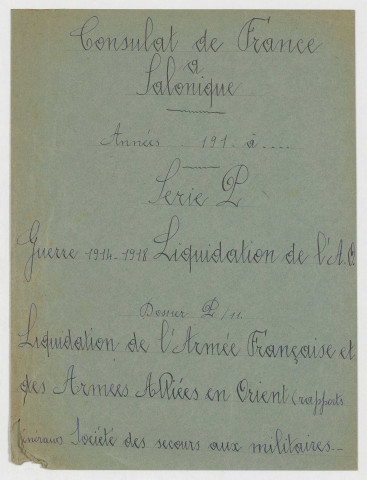 Consulat de France
à
Salonique
Années 191. à ....
Série P
Guerre 1914-1918 Liquidation de l'A.O
Dossier P/11
Liquidation de l'Armée Française et
des Armées Alliées en Orient (rapports
Société des secours aux militaires._